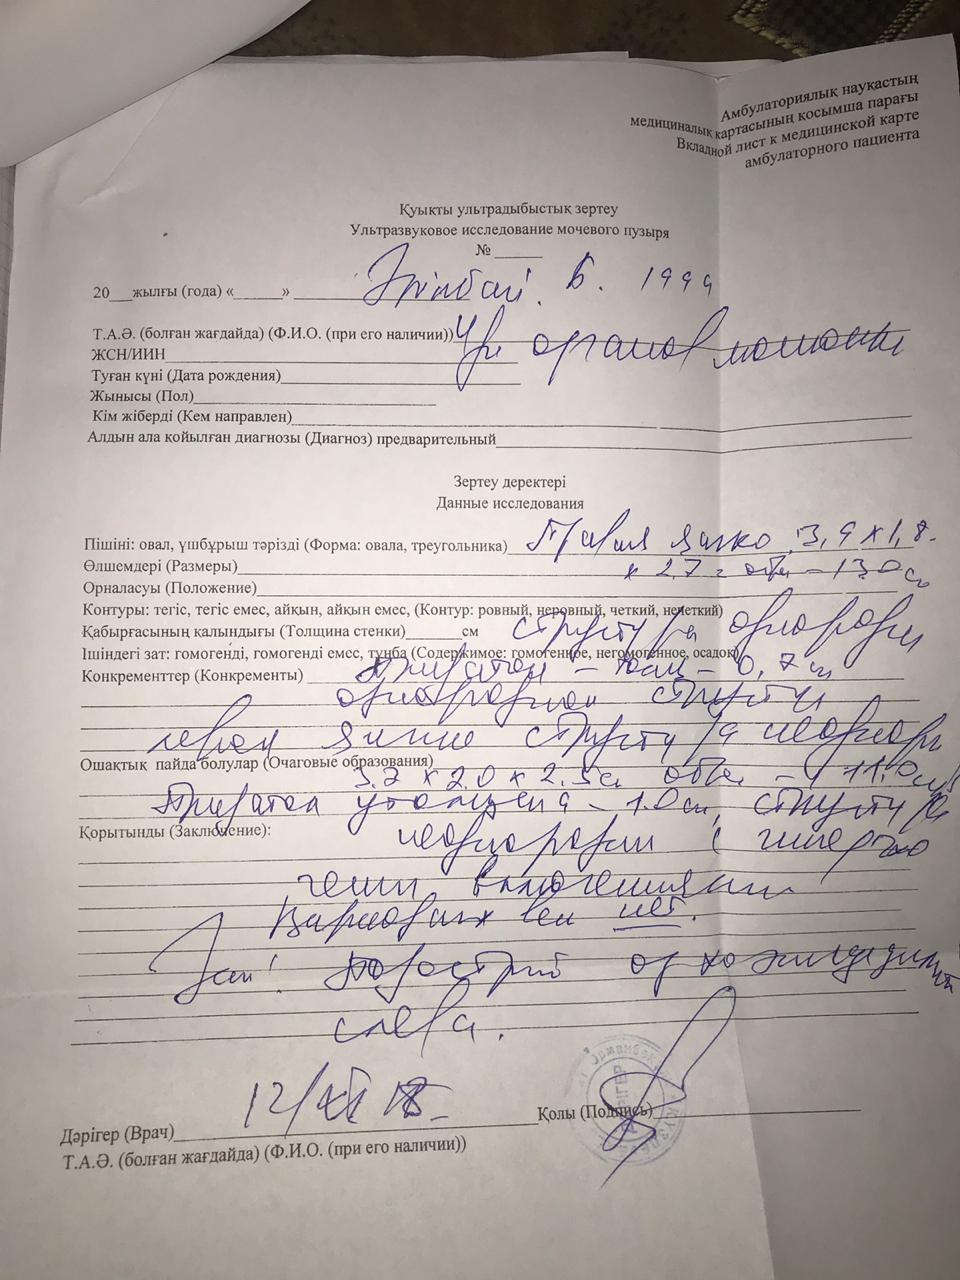 Амбулаториялық науқастың
медициналық картасының қосымша парағы
Вкладной лист к медицинской карте
амбулаторного пациента
Қуықты ультрадыбыстық зертеу
Ультразвуковое исследование мочевого пузыря
№ ______
20___жылғы (года) «______» Б. 1999
Т.А.Ә. (болған жағдайда) (Ф.И.О. (при его наличии)) Узи органов мошонки
ЖСН/ИИН
Туған күні (Дата рождения)
Жынысы (Пол)
Кім жіберді (Кем направлен)
Алдын ала қойылған диагнозы (Диагноз) предварительный
Зертеу деректері
Данные исследования
Пішіні: овал, үшбұрыш тәрізді (Форма: овала, треугольника) Правая яичко 3,9 x 1,8
Өлшемдері (Размеры) x 2,7 объ - 13,0 см
Орналасуы (Положение)
Контуры: тегіс, тегіс емес, айқын, айқын емес, (Контур: ровный, неровный, четкий, нечеткий)
Қабырғасының қалындығы (Толщина стенки)______см структура однородн
Ішіндегі зат: гомогенді, гомогенді емес, тұнба (Содержимое: гомогенное, негомогенное, осадок)
Конкременттер (Конкременты) Придаток - - 0,7 см
однородная структу
левая яичко структура неоднор
Ошақтық пайда болулар (Очаговые образования)
3.2 x 2.0 x 2.5 см объ - 11.0 см
Придаток утолщен - 1.0 см, структура
Қорытынды (Заключение):
неоднородн с гиперэхо
генн включениями
Варикозных вен нет.
Зак! Подострый орхоэпидидимит
слева.
12/XII 18
Дәрігер (Врач) Қолы (Подпись)
Т.А.Ә. (болған жағдайда) (Ф.И.О. (при его наличии))